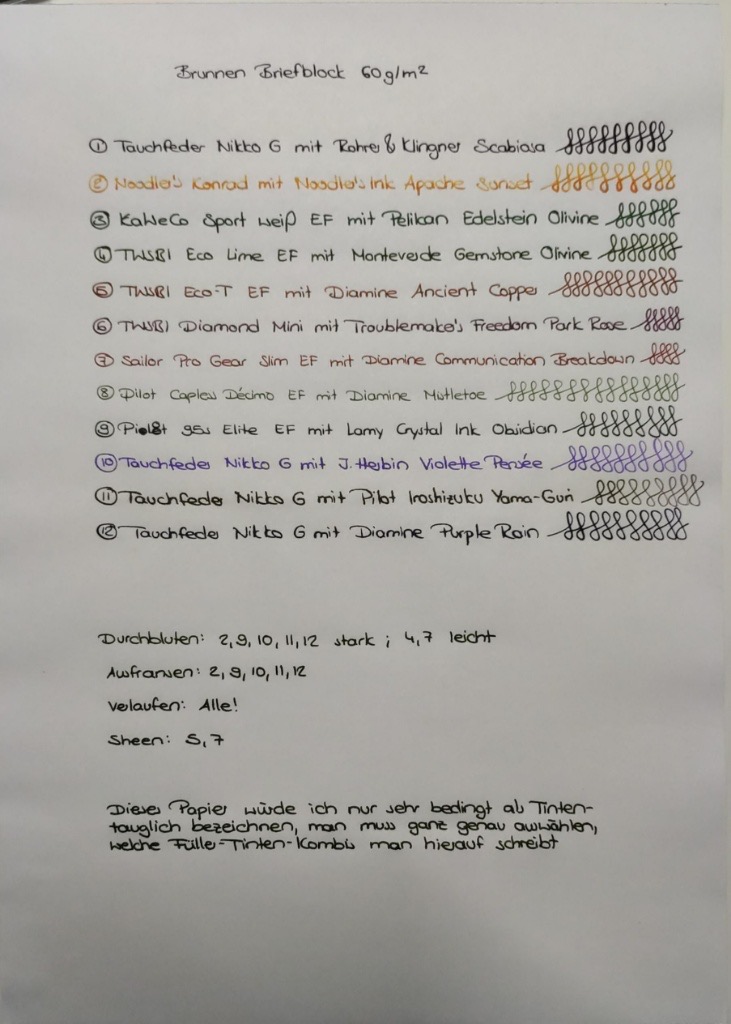 Brunnen Briefblock 60g/m²
① Tauchfeder Nikko G mit Rohrer & Klingner Scabiosa
② Noodler's Konrad mit Noodler's Ink Apache Sunset
③ KaWeCo Sport weiß EF mit Pelikan Edelstein Olivine
④ TWSBI Eco Lime EF mit Monteverde Gemstone Olivine
⑤ TWSBI Eco-T EF mit Diamine Ancient Copper
⑥ TWSBI Diamond Mini mit Troublemaker's Freedom Park Rose
⑦ Sailor Pro Gear Slim EF mit Diamine Communication Breakdown
⑧ Pilot Capless Décimo EF mit Diamine Mistletoe
⑨ Pilot 95s Elite EF mit Lamy Crystal Ink Obsidian
⑩ Tauchfeder Nikko G mit J. Herbin Violette Pensée
⑪ Tauchfeder Nikko G mit Pilot Iroshizuku Yama-Guri
⑫ Tauchfeder Nikko G mit Diamine Purple Rain
Durchbluten: 2, 9, 10, 11, 12 stark ; 4, 7 leicht
Ausfransen: 2, 9, 10, 11, 12
Velaufen: Alle!
Sheen: 5, 7
Dieses Papier würde ich nur sehr bedingt als Tinten-
tauglich bezeichnen, man muss ganz genau auswählen,
welche Füller-Tinten-Kombis man hierauf schreibt